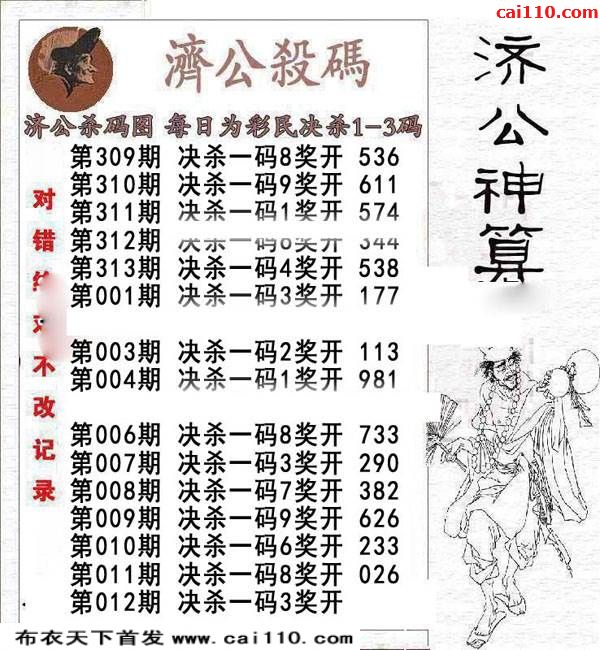 cai110.com
濟公殺碼
济公杀码图 每日为彩民决杀1-3码
第309期 决杀一码8奖开 536
第310期 决杀一码9奖开 611
第311期 决杀一码1奖开 574
第312期 决杀一码6奖开 344
第313期 决杀一码4奖开 538
第001期 决杀一码3奖开 177
第003期 决杀一码2奖开 113
第004期 决杀一码1奖开 981
第006期 决杀一码8奖开 733
第007期 决杀一码3奖开 290
第008期 决杀一码7奖开 382
第009期 决杀一码9奖开 626
第010期 决杀一码6奖开 233
第011期 决杀一码8奖开 026
第012期 决杀一码3奖开
对错
不改记录
济公神算
布衣天下首发 www.cai110.com